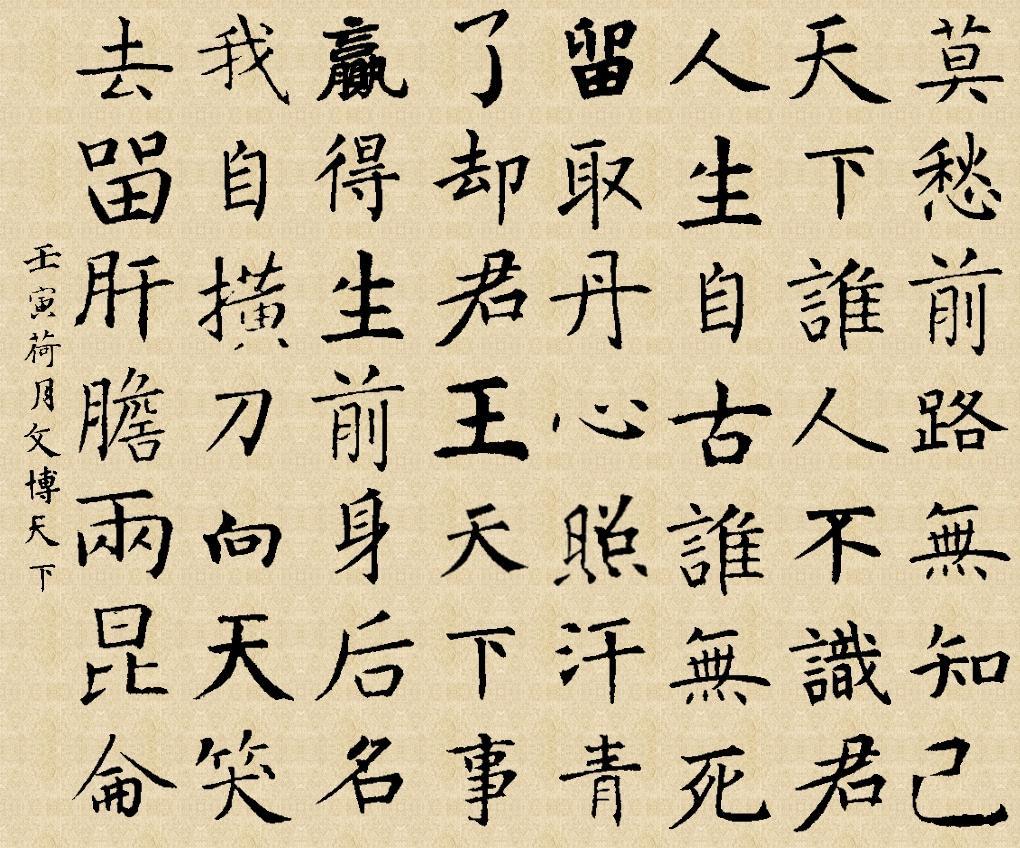 莫愁前路無知己
天下誰人不識君
人生自古誰無死
留取丹心照汗青
了却君王天下事
贏得生前身后名
我自橫刀向天笑
去留肝膽兩昆侖
壬寅荷月文博天下